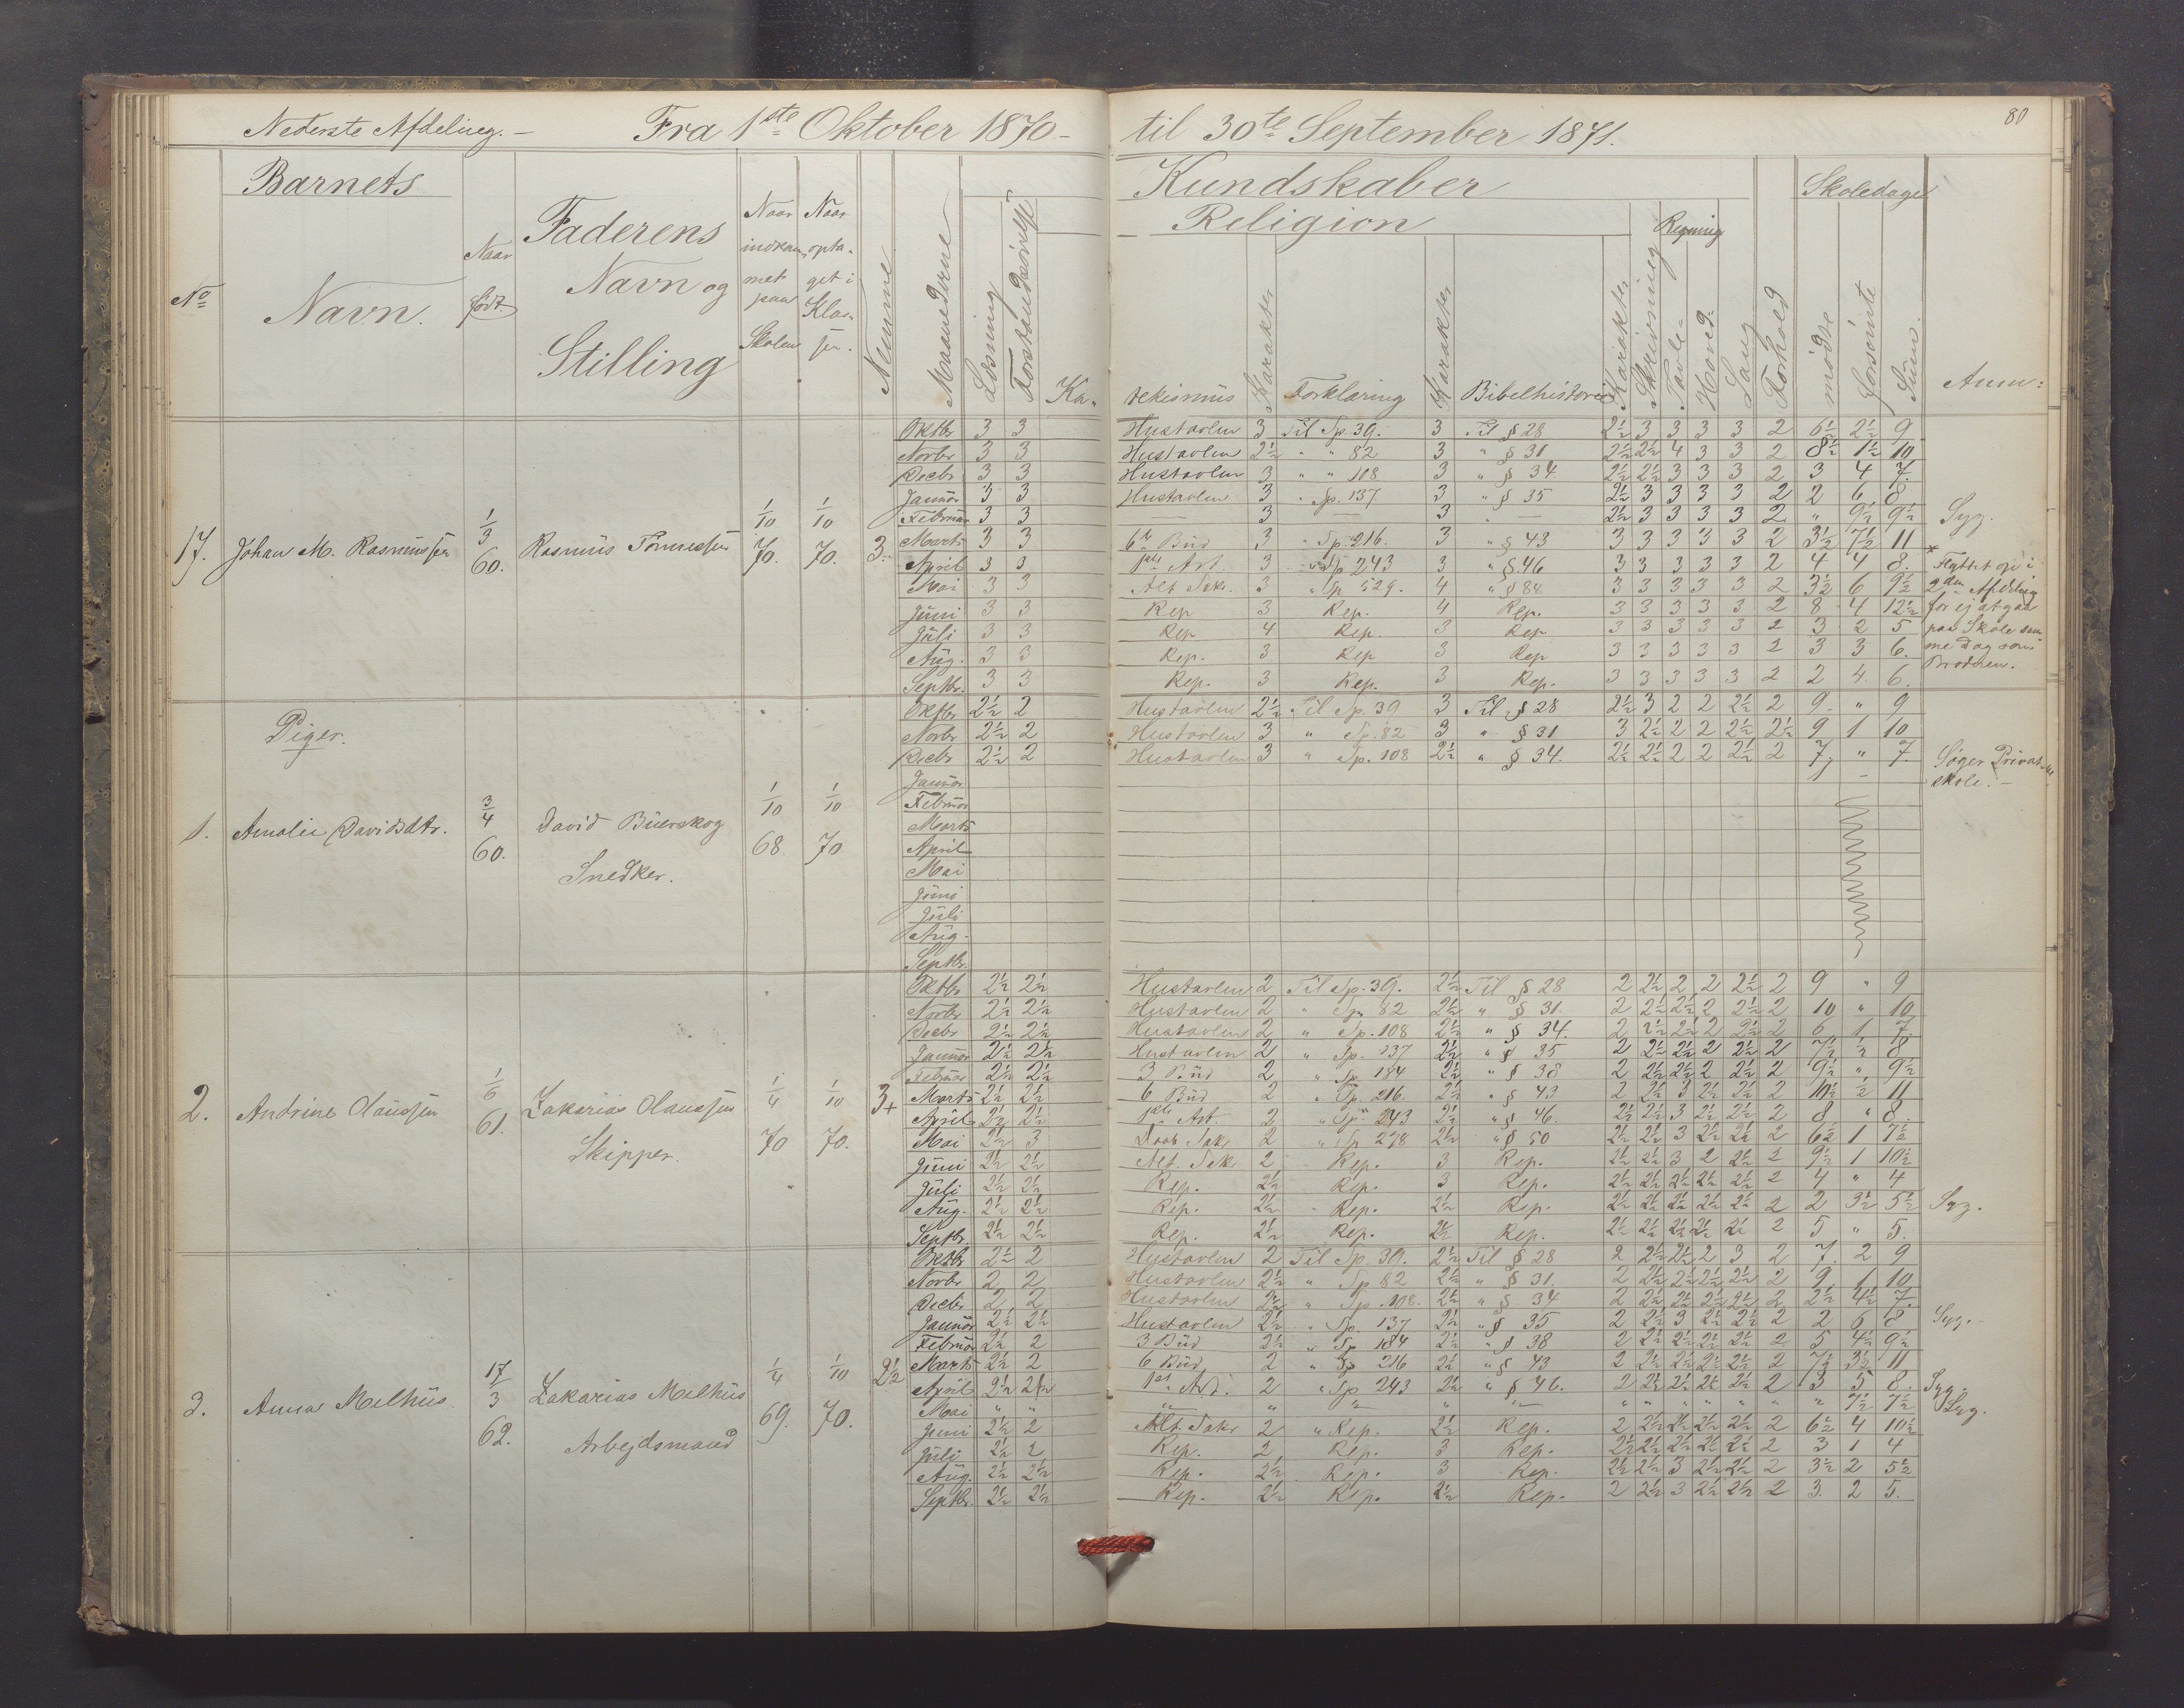 80
Nederste Afdeling. — Fra 1ste Oktober 1870 — til 30te September 1871.
Barnets Kundskaber Skoledage
Religion Regning
No Navn. Naar født. Faderens Navn og Stilling Naar indkommet paa Skolen Naar optaget i Klassen. Nummer Maanederne Læsning Forstandsøvelse Katekismus Karakter Forklaring Karakter Bibelhistorie Karakter Skrivning Tavle Hoved Sang Forhold mødte forsømte Sum. Anm:
17. Johan M. Rasmussen 1/3 60. Rasmus Tønnessen 1/10 70. 1/10 70. 3.
Oktbr 3 3 Hustavlen 3 Til Sp. 39. 3 Til § 28 2½ 3 3 3 3 2 6½ 2½ 9
Novbr 3 3 Hustavlen 2½ " " 82 3 " § 31 2½ 2½ 4 3 3 2 8½ 1½ 10
Decbr 3 3 Hustavlen 3 " " 108 3 " § 34 2½ 2½ 3 3 3 2 3 4 7.
Januar 3 3 Hustavlen 3 " Sp. 137 3 " § 35 2½ 3 3 3 3 2 2 6 8
Februar 3 3 — 3 — 3 — 2½ 3 3 3 3 2 " 9½ 9½ Syg.
Marts 3 3 6te Bud 3 " Sp. 216. 3 " § 43 3 3 3 3 3 2 3½ 7½ 11
April 3 3 1ste Art. 3 " Sp 243 3 " § 46 3 3 3 3 3 2 4 4 8.
Mai 3 3 Alt. Sak. 3 " Sp 529. 4 " § 88 3 3 3 3 3 2 3½ 6 9½
Juni 3 3 Rep 3 Rep. 4 Rep. 3 3 3 3 3 2 8 4 12½
Juli 3 3 Rep 4 Rep. 3 Rep 3 3 3 3 3 2 3 2 5
Aug. 3 3 Rep. 3 Rep 3 Rep 3 3 3 3 3 2 3 3 6.
Septbr. 3 3 Rep. 3 Rep. 3 Rep. 3 3 3 3 3 2 2 4. 6.
* Flyttet op i
2den Afdeling
for ej at gaa
paa Skole sam
me Dag som
Broderen.
Piger.
1. Amalie Davidsdtr. 3/4 60. David Buerskog Snedker. 1/10 68. 1/10 70
Oktbr 2½ 2 Hustavlen 2½ Til Sp. 39 3 Til § 28 2½ 3 2 2 2½ 2 9. " 9
Novbr 2½ 2 Hustavlen 3 " Sp. 82 3 " § 31 3 2½ 2 2 2½ 2½ 9 1 10
Decbr 2½ 2 Hustavlen 3 " Sp. 108 2½ " § 34. 2½ 2½ 2 2 2½ 2 7 " 7.
Søger Privat-
skole. —
Januar
Februar
Marts
April
Mai
Juni
Juli
Aug.
Septbr.
2. Andrine Claussen 1/6 61. Zakarias Claussen Skipper. 1/4 70 1/10 70. 3+
Oktbr 2½ 2½ Hustavlen 2 Til Sp. 39. 2½ Til § 28 2 2½ 2 2 2½ 2 9 " 9
Novbr 2½ 2½ Hustavlen 2 " Sp. 82 2½ " § 31. 2 2½ 2½ 2 2½ 2 10 " 10
Decbr 2½ 2½ Hustavlen 2 " Sp. 108 2½ " § 34. 2 2½ 2½ 2 2½ 2 6 1 7.
Januar 2½ 2½ Hustavlen 2 " Sp. 137 2½ " § 35 2 2½ 2½ 2 2½ 2 7½ ½ 8
Februar 2½ 2½ 3 Bud 2 " Sp 184 2½ " § 38 2 2½ 2½ 2 2½ 2 9½ " 9½
Marts 2½ 2½ 6 Bud 2 " Sp. 216. 2½ " § 43 2 2½ 3 2½ 2½ 2 10½ ½ 11
April 2½ 2½ 1ste Art. 2 " Sp 243 2½ " § 46. 2½ 2½ 3 2½ 2½ 2 8 " 8.
Mai 2½ 3 Daab Sak 2 " Sp 278 2½ " § 50 2½ 2½ 3 2½ 2½ 2 6½ 1 7½
Juni 2½ 2½ Alt. Sak 2 Rep. 3 Rep. 2½ 2½ 3 2 2½ 2 9½ 1 10½
Juli 2½ 2½ Rep. 2½ Rep. 3 Rep. 2½ 2½ 2½ 2½ 2½ 2 4 " 4
Aug. 2½ 2½ Rep. 2½ Rep. 2½ Rep. 2½ 2½ 2½ 2½ 2½ 2 2 3½ 5½ Syg.
Septbr. 2½ 2½ Rep. 2½ Rep. 2½ Rep. 2½ 2½ 2½ 2½ 2½ 2 5 " 5.
3. Anna Melhus 17/3 62. Zakarias Melhus Arbejdsmand 1/4 69. 1/10 70. 2½
Oktbr 2½ 2 Hustavlen 2 Til Sp. 39. 2½ Til § 28 2 2½ 2½ 2 3 2 7. 2 9
Novbr 2 2 Hustavlen 2½ " Sp 82 2½ " § 31. 2 2½ 2½ 2½ 2½ 2 9. 1 10
Decbr 2 2 Hustavlen 2½ " Sp. 108. 2½ " § 34 2 2½ 2½ 2½ 2½ 2 2½ 4½ 7.
Januar 2½ 2½ Hustavlen 2½ " Sp. 137 2½ " § 35 2 2½ 3 2½ 2½ 2 2 6 8 Syg.
Februar 2½ 2 3 Bud 2½ " Sp 184 2½ " § 38 2 2½ 2½ 2½ 2½ 2 5 4½ 9½
Marts 2½ 2 6 Bud 2 " Sp 216 2½ " § 43 2 2½ 2½ 2½ 2½ 2 7½ 3½ 11
April 2½ 2½ 1ste Art. 2 " Sp 243 2½ " § 46. 2 2½ 2½ 2½ 2½ 2 3 5 8. Syg.
Mai " " " " " " " " " " " " " " 7½ 7½ Syg.
Juni 2½ 2 Alt. Sakr 2 " Rep. 2½ Rep. 2 2½ 2½ 2½ 2½ 2 6½ 4 10½
Juli 2½ 2 Rep. 2 Rep. 3 Rep. 2½ 2½ 2½ 2½ 2½ 2 3 1 4
Aug. 2½ 2½ Rep. 2½ Rep. 3 Rep. 2½ 2½ 3 2½ 2½ 2 3½ 2 5½
Septbr. 2½ 2½ Rep. 2½ Rep. 2½ Rep. 2 2½ 3 2½ 2½ 2 3. 2 5.